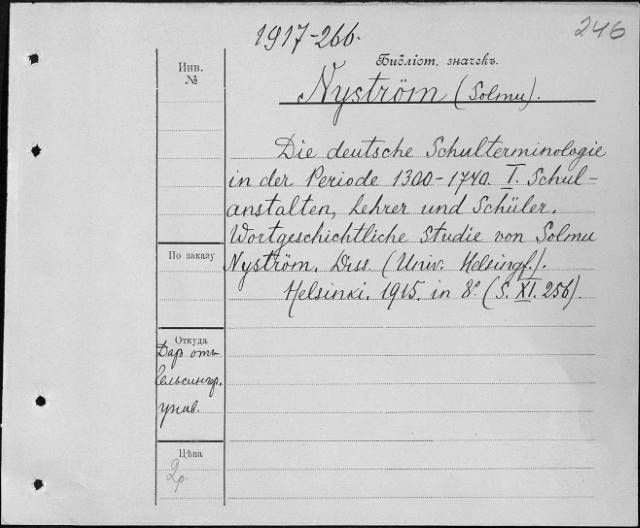 1917-266.
246
Инв.
№
Библіот. значекъ.
Nyström (Solmu).
Die deutsche Schulterminologie
in der Periode 1300-1740. I. Schul-
anstalten, Lehrer und Schüler.
Wortgeschichtliche Studie von Solmu
Nyström. Diss. (Univ. Helsingf.).
Helsinki. 1915. in 8° (S. XI. 256).
По заказу
Откуда
Даръ отъ
Гельсингф.
унив.
Цѣна
2р.